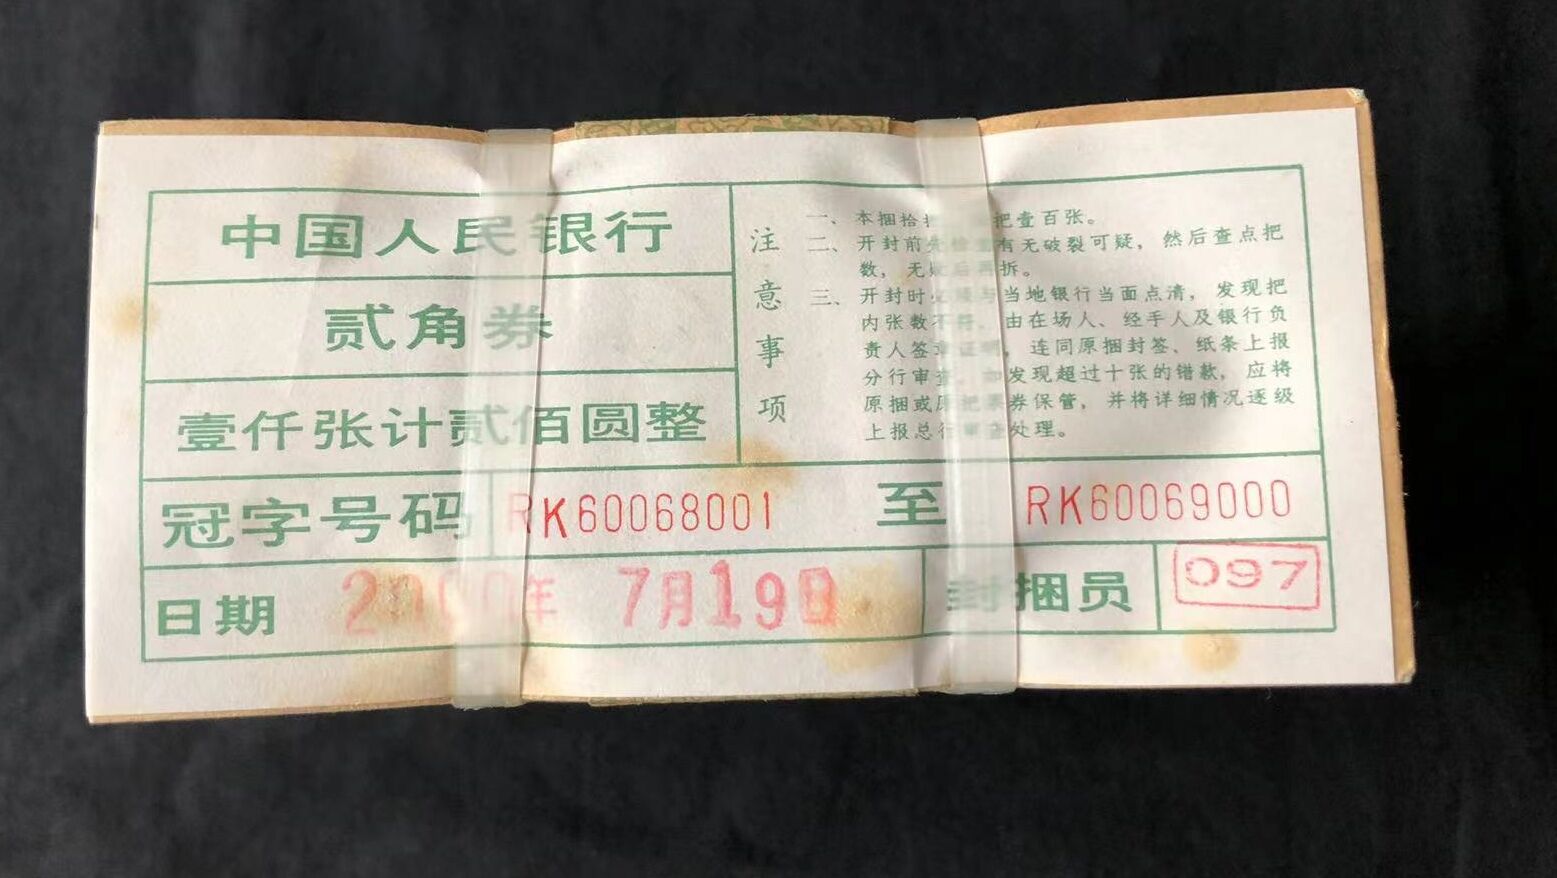 中国人民银行
贰角券
壹仟张计贰佰圆整
注意事项
一、本捆拾把 把壹百张。
二、开封前先检查有无破裂可疑，然后查点把
数，无疑后再拆。
三、开封时必须与当地银行当面点清，发现把
内张数不符，由在场人、经手人及银行负
责人签章证明，连同原捆封签、纸条上报
分行审查，如发现超过十张的错款，应将
原捆或原把票券保管，并将详细情况逐级
上报总行审查处理。
冠字号码 RK60068001 至 RK60069000
日期 2000年 7月19日 封捆员 097